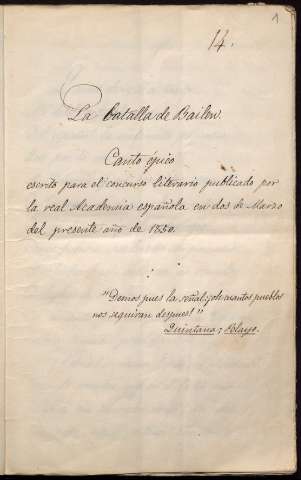 1
14.
La batalla de Bailen.
Canto épico
escrito para el concurso literario publicado por
la real Academia española en dos de Marzo
del presente año de 1850.
"Demos pues la señal: ¡oh cuantos pueblos
nos seguiran despues!"
Quintana; Pelayo.